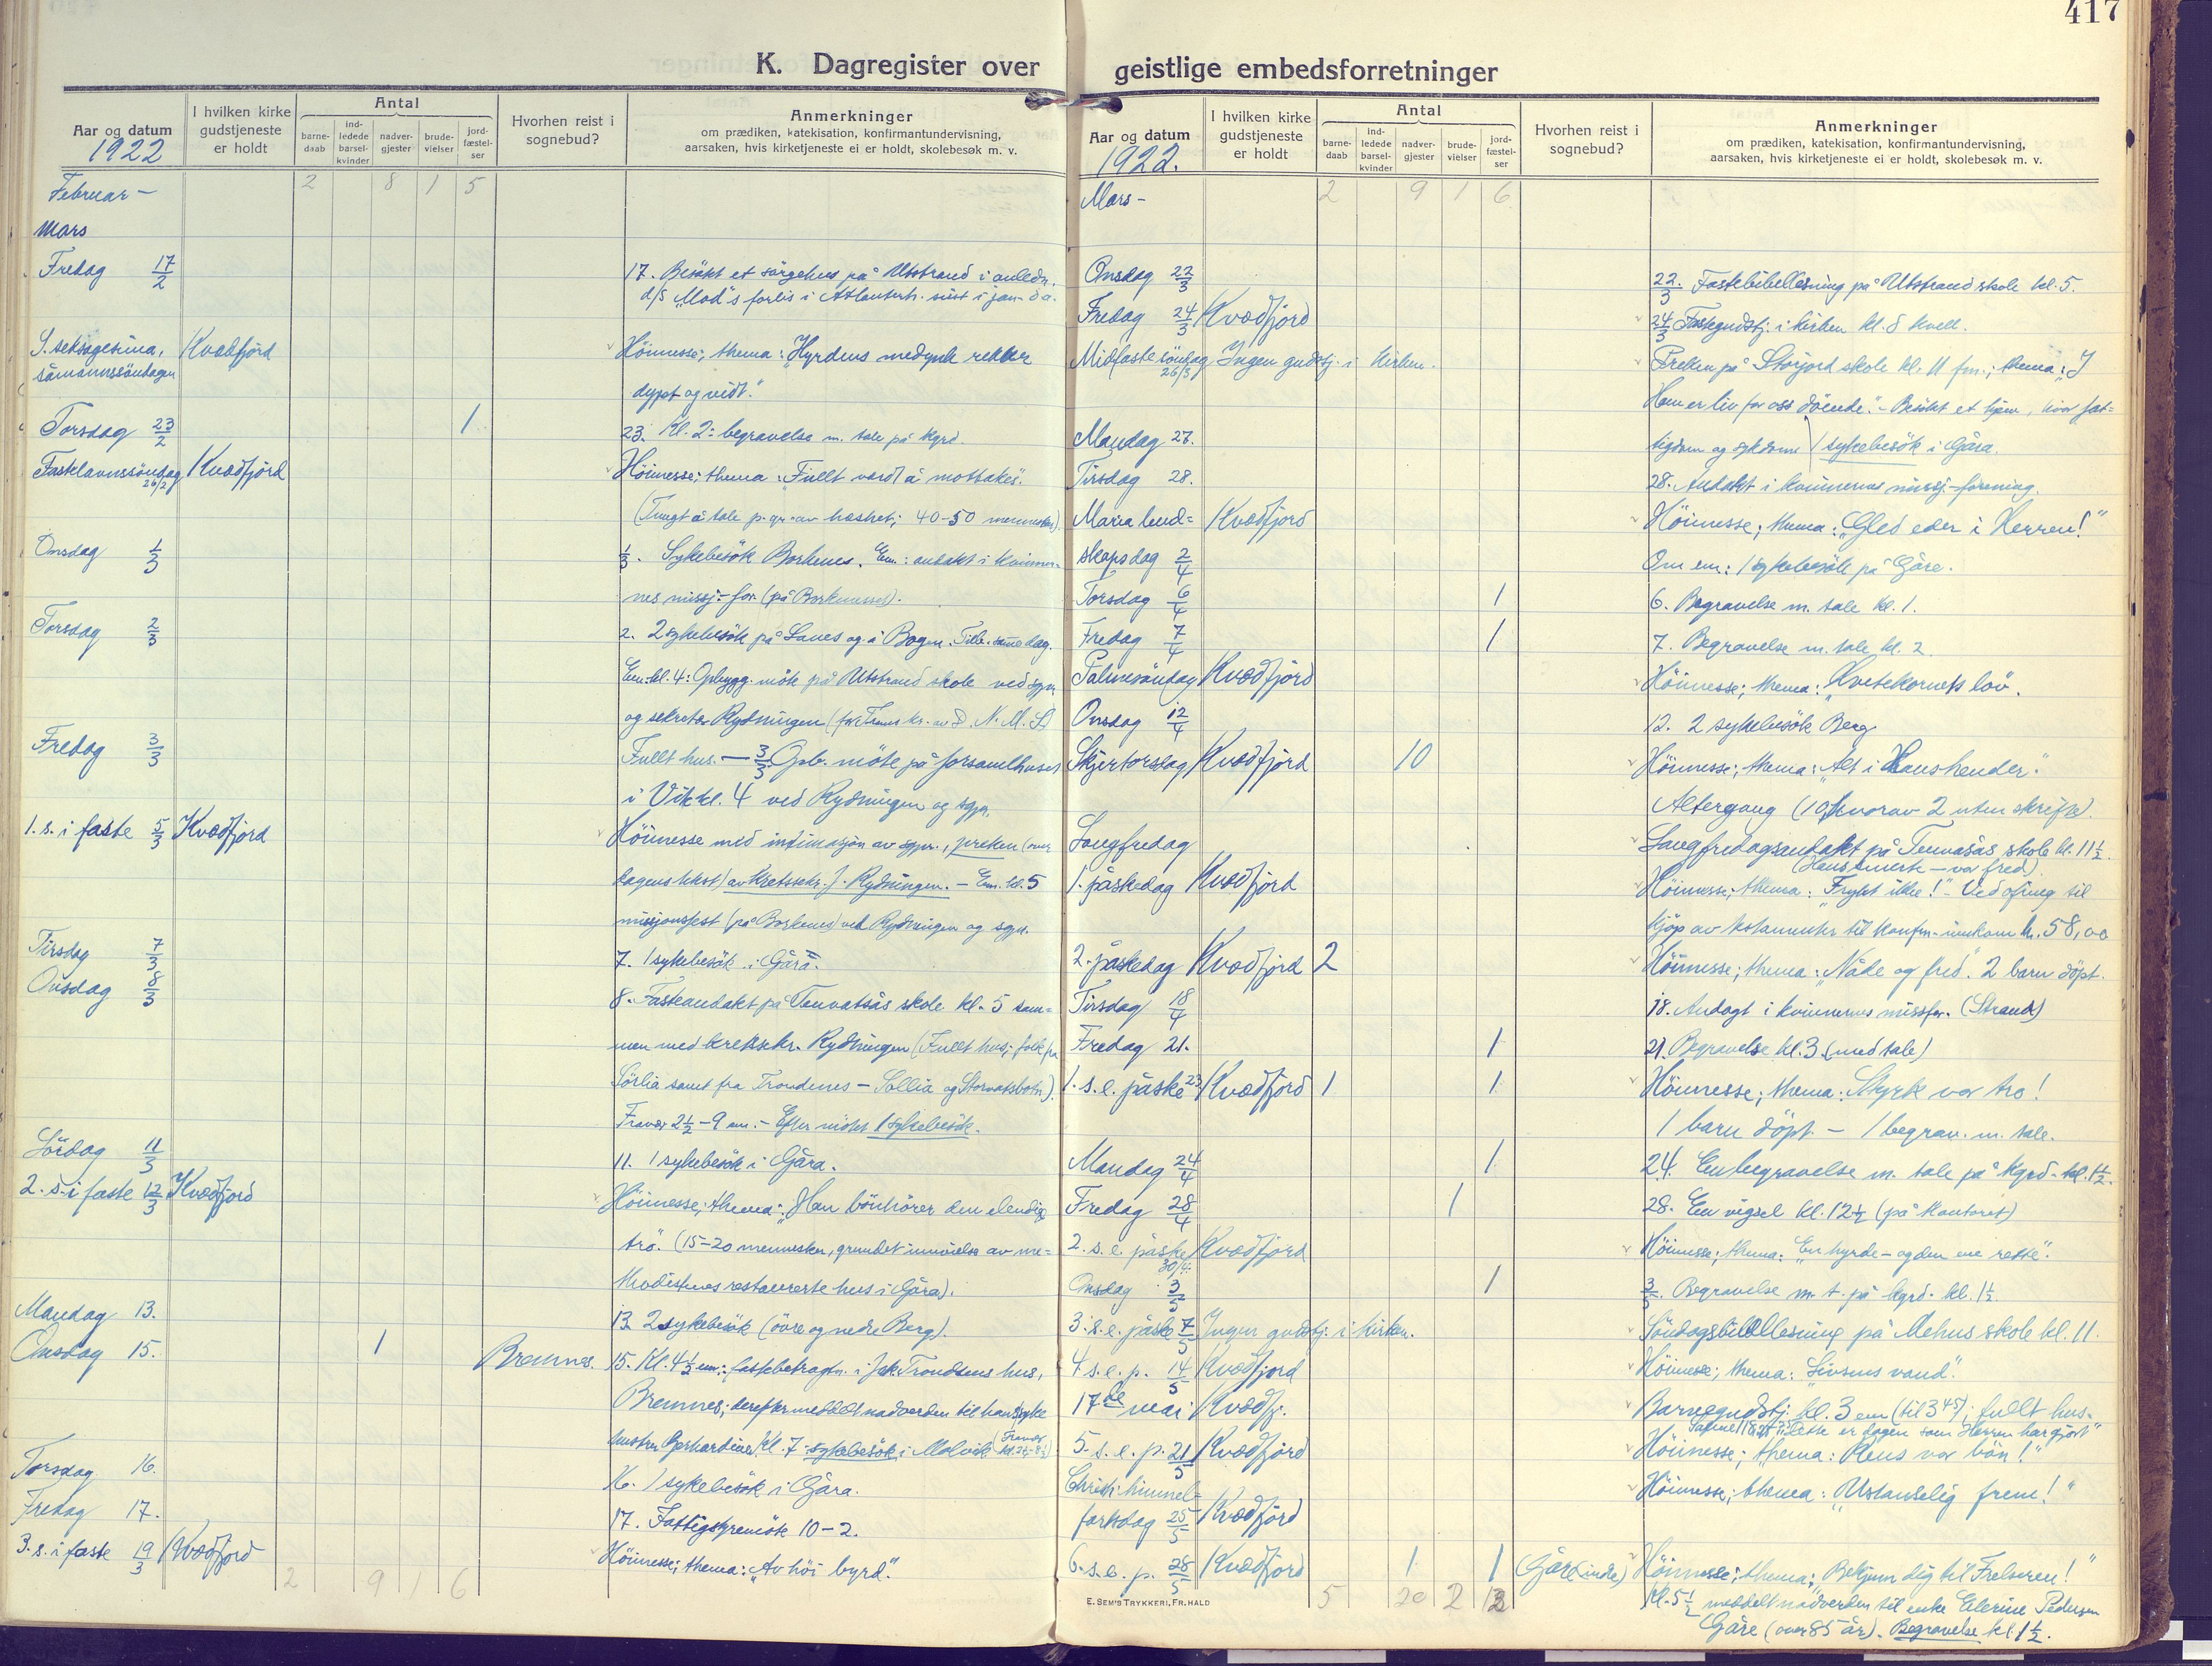 417
K. Dagregister over geistlige embedsforretninger
Aar og datum
1922
I hvilken kirke gudstjeneste er holdt
Antal
barne-daab
ind-ledede barsel-kvinder
nadver-gjester
brude-vielser
jord-fæstel-ser
Hvorhen reist i sognebud?
Anmerkninger
om prædiken, katekisation, konfirmantundervisning,
aarsaken, hvis kirketjeneste ei er holdt, skolebesøk m. v.
Februar – 2 8 1 5
Mars
Fredag 17/2 17. Besøkt et sørgehus på Utstrand i anledn.
d/s "Mod"s forlis i Atlanterh. sist i jan. d. a.
S. seksagesima, Kvædfjord Höimesse; thema: "Hyrdens medynk rekker
såmannssöndagen
dypt og vidt."
Torsdag 23/2 1 23. Kl. 2: begravelse m. tale på kgrd.
Fastelavnssöndag 26/2 Kvædfjord Höimesse; thema: "Fullt verdt å mottakes".
(Tungt å tale p. gr. av hæshet; 40-50 mennesker)
Onsdag 1/3 1/3. Sykebesök Borkenes. Em.: andakt i kvinner-
nes missj.-for. (på Borkenes).
Torsdag 2/3 2. 2 sykebesök på Lanes og i Bogen. Tilb. samme dag.
Em. kl. 4: Opbygg. möte på Utstrand skole ved sgpr.
og sekretær Rydningen (for Troms kr. av D. N. M. S.)
Fredag 3/3 Fullt hus. — 3/3 Opb. möte på forsamlhuset
i Vik kl. 4 ved Rydningen og sgpr.
1. s. i faste 5/3 Kvædfjord Höimesse med intimasjon av sgpr., preken (over
dagens tekst) av kretssekr. J. Rydningen. – Em. kl. 5
missjonsfest (på Borkenes) ved Rydningen og sgpr.
Tirsdag 7/3 7. 1 sykebesök i Gåra.
Onsdag 8/3 8. Fasteandakt på Tennvatsås skole kl. 5 sam-
men med kretssekr. Rydningen (Fullt hus; folk fra
Sörlia samt fra Trondenes – Sollia og Storvatsbotn).
Fravær 2½ – 9 em. – Efter mötet 1 sykebesök.
Lördag 11/3 11. 1 sykebesök i Gåra.
2. s. i faste 12/3 Kvædfjord Höimesse; thema: "Han bönhörer den elendige
tro". (15-20 mennesker, grundet innvielse av me-
thodistenes restaurerte hus i Gåra).
Mandag 13. 13. 2 sykebesök (övre og nedre Berg).
Onsdag 15. 1 Bremnes. 15. Kl. 4½ em.: fastebetragtn. i Jak. Trondsens hus,
Bremnes; derefter meddelt nadverden til hans syke
hustru Gerhardine. Kl. 7: sykebesök i Molvik.
Torsdag 16. 16. 1 sykebesök i Gåra.
Fredag 17. 17. Fattigstyremöte 10–2.
3. s. i faste 19/3 Kvædfjord Höimesse; thema: "Av höi byrd."
2 9 1 6
Aar og datum
1922.
I hvilken kirke gudstjeneste er holdt
Antal
barne-daab
ind-ledede barsel-kvinder
nadver-gjester
brude-vielser
jord-fæstel-ser
Hvorhen reist i sognebud?
Anmerkninger
om prædiken, katekisation, konfirmantundervisning,
aarsaken, hvis kirketjeneste ei er holdt, skolebesøk m. v.
Mars – 2 9 1 6
Onsdag 22/3 22/3. Fastebibellesning på Utstrand skole kl. 5.
Fredag 24/3 Kvædfjord 24/3 Fastegudstj. i kirken kl. 8 kveld.
Midfastesöndag 26/3 Ingen gudstj. i kirken. Preken på Storjord skole kl. 11 fm.; thema: "I
Ham er liv for oss döende." – Besökt et hjem, hvor fat-
Mandag 27. tigdom og sykdom / 1 sykebesök i Gåra.
Tirsdag 28. 28. Andakt i kvinnenes missj.-forening.
Maria bud- Kvædfjord Höimesse; thema: "Gled eder i Herren!"
skapsdag 2/4 Om em.: 1 sykebesök på Gåre.
Torsdag 6/4 1 6. Begravelse m. tale kl. 1.
Fredag 7/4 1 7. Begravelse m. tale kl. 2.
Palmesöndag Kvædfjord Höimesse; thema: "Hvetekornets lov.
Onsdag 12/4 12. 2 sykebesök Berg
Skjertorsdag Kvædfjord 10 Höimesse; thema: "Alt i Hans hender."
Altergang (10, hvorav 2 uten skrifte).
Langfredag Langfredagsandakt på Tennvasås skole kl. 11½.
(Hans smerte – vor fred)
1. påskedag Kvædfjord Höimesse; thema: "Frykt ikke!" – Ved ofring til
kjöp av testamenter til konfm. innkom kr. 58,00
2. påskedag Kvædfjord 2 Höimesse; thema: "Nåde og fred". 2 barn döpt.
Tirsdag 18/4 18. Andagt i kvinnenes missfor. (Strand)
Fredag 21. 1 21. Begravelse kl. 3. (med tale)
1. s. e. påske 23. Kvædfjord 1 1 Höimesse; thema: Styrk vor tro!
1 barn döpt. – 1 begrav. m. tale.
Mandag 24/4 1 24. En begravelse m. tale på kgrd. kl. 1½.
Fredag 28/4 1 28. En vigsel kl. 12½ (på kontoret)
2. s. e. påske 30/4. Kvædfjord Höimesse; thema: "En hyrde – og den ene rette".
Onsdag 3/5 1 3/5. Begravelse m. t. på kgrd. kl. 1½.
3. s. e. påske 7/5 Ingen gudstj. i kirken. Söndagsbibellesning på Mehus skole kl. 11.
4 s. e. p. 14/5 Kvædfjord Höimesse; thema: "Livsens vand".
17de mai Kvædfj. Barnegudstj. kl. 3 em (til 3 45); fullt hus.
Salme 118,24 "Dette er dagen som Herren har gjort"
5. s. e. p. 21/5 Kvædfjord Höimesse; thema: "Rens vor bön!"
Christi himmel-
fartsdag 25/5 Kvædfjord Höimesse; thema: "Ustanselig frem!"
6. s. e. p. 28/5 Kvædfjord 1 1 Gåre (indre) Höimesse; thema: "Bekjenn dig til Frelseren!"
Kl. 5½ meddelt nadverden til enke Elerine Pedersen
Gåre (over 85 år). Begravelse kl. 1½.
5 20 2
E. SEM'S TRYKKERI, FR.HALD